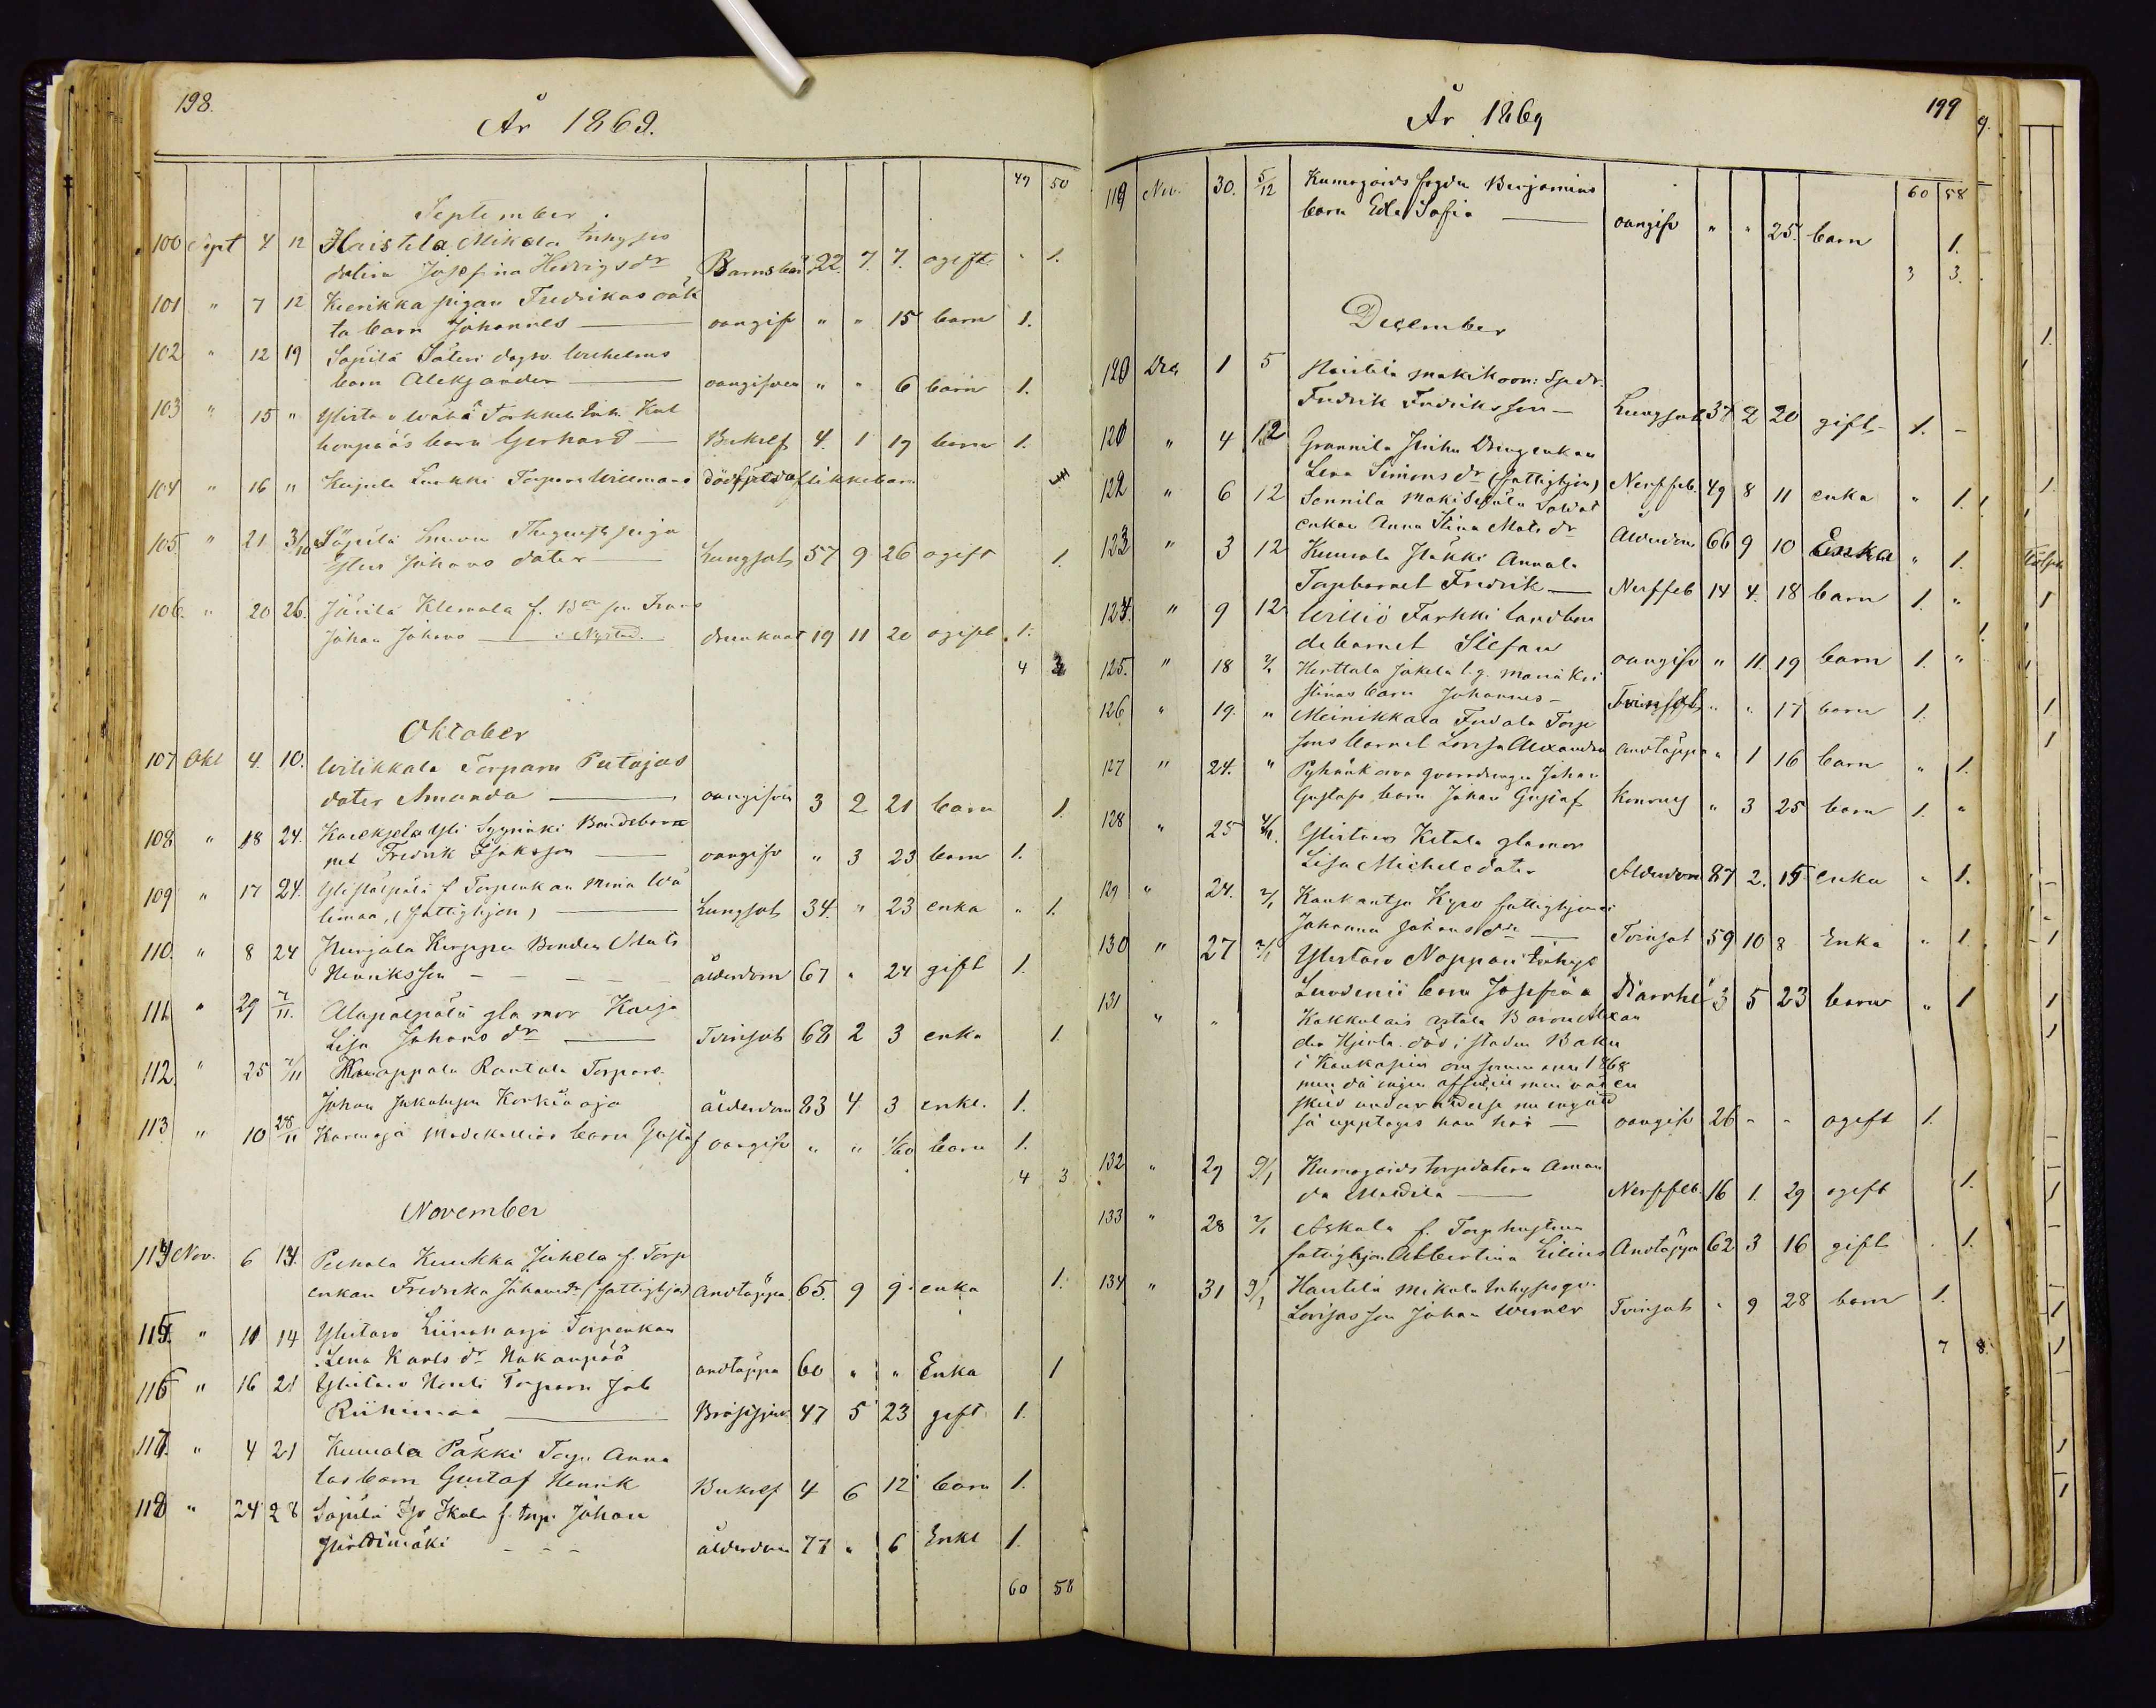 198.
År 1869.
49 50
September.
100 Sept 4 12 Haistila Mikola Inhyses
dotren Josefina Hedvigsdr Barnsbörd 22. 7. 7. ogift " 1.
101 " 7 12 Keerikka pigan Fredrikas oäk
ta barn Johannes oangifv " " 15 barn 1.
102 " 12 19 Säpilä Säteri dagsv. Wilhelms
barn Aleksander oangifven " " 6 barn 1.
103 " 15 " Torkkeli
barn Gerhard Bukref 4. 1 19 barn 1.
104 " 16 " Lurkki Torparn Willmans dödfödda flikkebarn
105. " 21 3/10 Säpilä piga
Johans dotter Lungsot 57 9 26 ogift 1.
106. " 20 26. Järilä Klemola f. son Frans
Johan Johans i Nystad. drunknat 19 11 20 ogift 1.
4 3
Oktober
107 Okt 4. 10. Wilikkala Torparn Putajas
dotter Amanda oangifven 3 2 21 barn 1.
108 " 18 24. Yli Syynäki Bondebar
net Fredrik Isaksson oangifv " 3 23 barn 1.
109 " 17 24. f. Torpenkan Mina Wä
limaa, (fattighjon) Lungsot 34. " 23 enka " 1.
110. " 8 24 Hurjala Bonden Mats
Henriksson ålderdom 67 " 24 gift 1.
111. " 29 7/11. Alapälpälä gla mor Kaisa
Lisa Johans dr Tvinsot 68 2 3 enka 1.
112. " 25 7/11 Rantala Torparn
Johan Korkiaoja ålderdom 83 4 3 enkl. 1.
113 " 10 28/11 Karmoja Madekallios barn Gustaf oangifv " " 1/60 barn 1.
4 3
November
114 Nov. 6 14. Peohola Kuukka Juhela f. Torp
enkan Fredrika Johansdr (fattighjon) Andtäppa 65. 9 9 enka 1.
115. " 11 14 Ylistaro Liinaharja Torpenkan
Lena Karls dr Hakanpää andtäppa 60 " " Enka 1
116 " 16 21 Ylistaro Torparn Job
Riihimaa Bröstsjuk. 47 5 23 gift 1.
117. " 4 21 Kuurola Päkki Torp. Anna
las barn Gustaf Henrik Bukref 4 6 12 barn 1.
118 " 24 28 Säpilä Iso Ikala f. torp. Johan
ålderdom 77 " 6 Enkl 1.
60 58
199
År 1869
60 58
119 Nov. 30. 5/12 Kumogårds fogden Benjamins
barn Eda Sofia oangifv " " 25. barn 1.
3 3.
December
120 Dec 1 5 Haistila
Fredrik Fredriksson Lungsot 37 2 20 gift 1. -
121 " 4 12 Grannila Drengenkan
Lena Simons dr (fattighjon) Nerffeb. 49 8 11 enka " 1.
122 " 6 12 Sonnila Mäkiseppälä Soldat
enkan Anna Stina Mats dr Ålderdom 66 9 10 Enka " 1.
123 " 3 12 Kuurola Annala
Torpbarnet Fredrik Nerffeb 14 4. 18 barn 1. "
124. " 9 12 Williö Farkki landbon
debarnet Stefan oangifv " 11. 19 barn 1. "
125. " 18 2/1 Herttala Jakola l.g. Maria Kri
stinas barn Johannes Tvinsot " " 17 barn 1.
126 " 19. " Meinikkala Torp
sons barnet Lovisa Alexandra andtäppa " 1 16 barn " 1.
127 " 24. " Pyhänkorva qvarndrengen Johan
Gustafs barn Johan Gustaf " 3 25 barn 1. "
128 " 25 Ylistaro Ketola gla mor
Lisa Michels dotter Ålderdom 87 2. 15 enka " 1.
129 " 24. 2/1 Kaukantsu fattighjon
Johanna Johansdr Tvinsot 59 10 8 Enka " 1.
130 " 27 2/1 Ylistaro Noppari Inhys
barn Josefina Diarrhé 3 5 23 barn " 1
131 " " Kakkulais Baron Alexan
der Hjerta död i staden Baku
i Kaukasien om sommaren 1868
men då ingen
så upptages han här oangifv 26 - - ogift 1.
132 " 29 9/1 Kumogårds torpdotern Aman
da Mattila Nerffeb. 16 1. 29 ogift 1.
133 " 28 2/1 Askola f. Torphustrun
fattighjon Albertina Lilius Andtäppa 62 3 16 gift . 1.
134 " 31 9/1 Haistila Mikola Inhysesqv.
Lovisas son Johan Werner Tvinsot " 9 28 barn 1.
7 8.